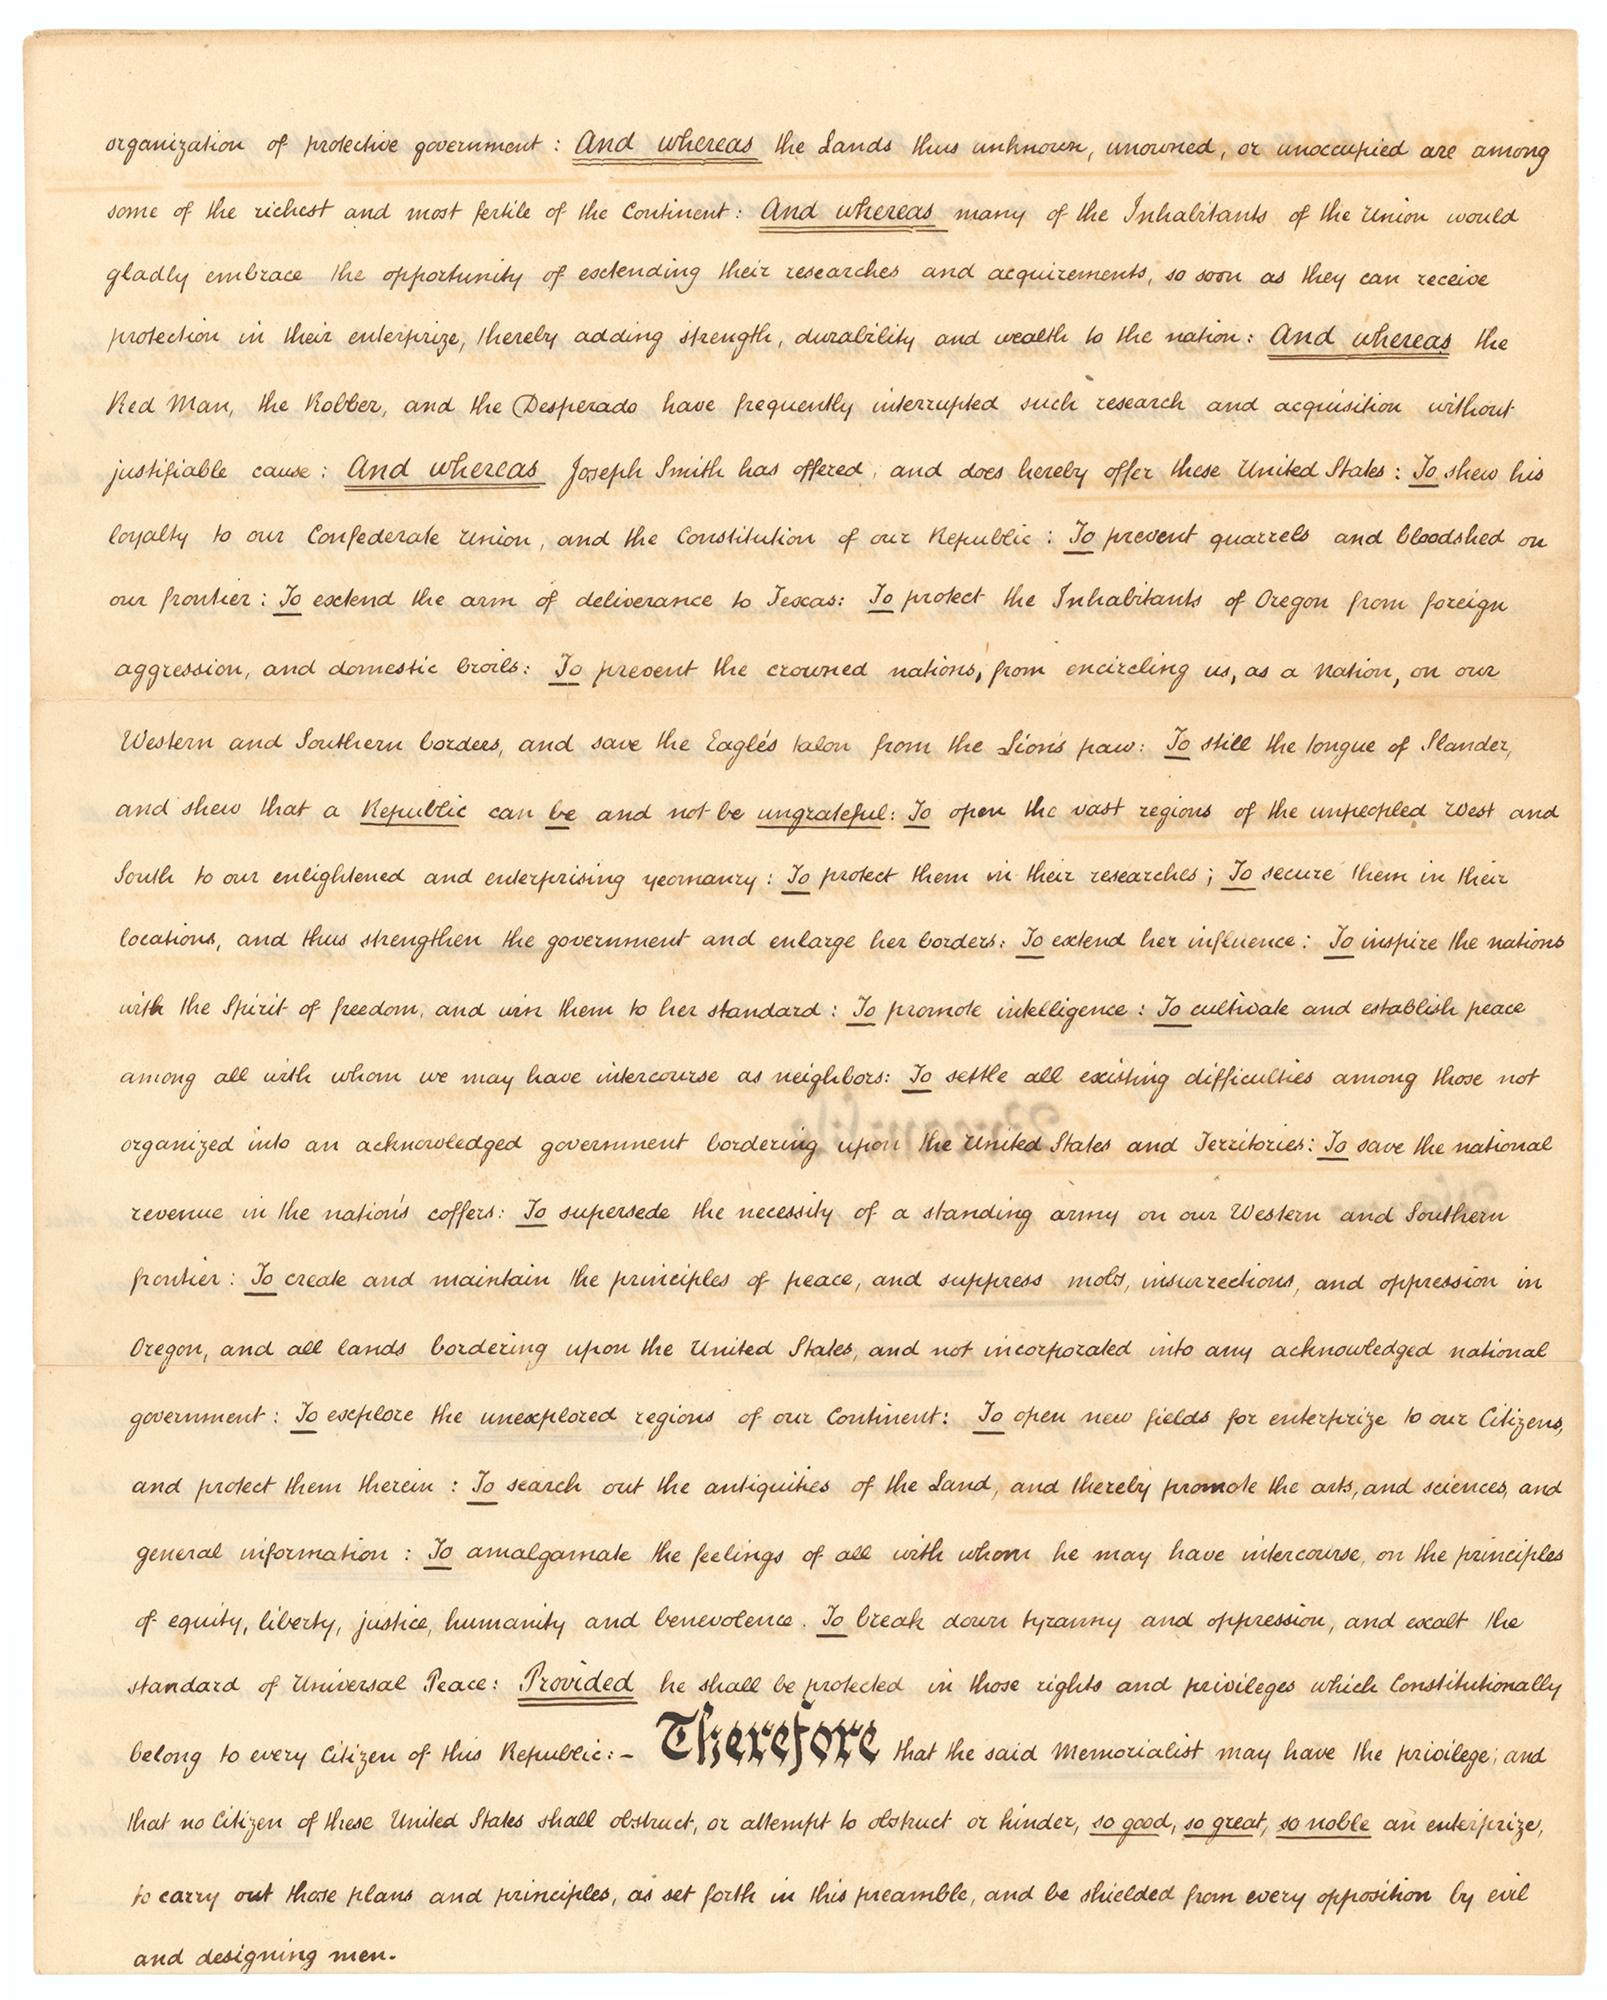 organization of protective government : And whereas the Lands thus unknown, unowned, or unoccupied are among
some of the richest and most fertile of the Continent : And whereas many of the Inhabitants of the Union would
gladly embrace the opportunity of extending their researches and acquirements, so soon as they can receive
protection in their enterprize, thereby adding strength, durability and wealth to the nation : And whereas the
Red Man, the Robber, and the Desperado have frequently interrupted such research and acquisition without
justifiable cause : And whereas Joseph Smith has offered, and does hereby offer these United States : To shew his
loyalty to our Confederate Union, and the Constitution of our Republic : To prevent quarrels and bloodshed on
our frontier : To extend the arm of deliverance to Texas : To protect the Inhabitants of Oregon from foreign
aggression, and domestic broils : To prevent the crowned nations, from encircling us, as a Nation, on our
Western and Southern borders, and save the Eagle's talon from the Lion's paw : To still the tongue of Slander,
and shew that a Republic can be and not be ungrateful : To open the vast regions of the unpeopled West and
South to our enlightened and enterprising yeomanry : To protect them in their researches ; To secure them in their
locations, and thus strengthen the government and enlarge her borders : To extend her influence : To inspire the nations
with the Spirit of freedom, and win them to her standard : To promote intelligence : To cultivate and establish peace
among all with whom we may have intercourse as neighbors : To settle all existing difficulties among those not
organized into an acknowledged government bordering upon the United States and Territories : To save the national
revenue in the nation's coffers : To supersede the necessity of a standing army on our Western and Southern
frontier : To create and maintain the principles of peace, and suppress mobs, insurrections, and oppression in
Oregon, and all lands bordering upon the United States, and not incorporated into any acknowledged national
government : To explore the unexplored regions of our Continent : To open new fields for enterprize to our Citizens,
and protect them therein : To search out the antiquities of the Land, and thereby promote the arts, and sciences, and
general information : To amalgamate the feelings of all with whom he may have intercourse, on the principles
of equity, liberty, justice, humanity and benevolence. To break down tyranny and oppression, and exalt the
standard of Universal Peace : Provided he shall be protected in those rights and privileges which Constitutionally
belong to every Citizen of this Republic : – Therefore that the said Memorialist may have the privilege, and
that no Citizen of these United States shall obstruct, or attempt to obstruct or hinder, so good, so great, so noble an enterprize,
to carry out those plans and principles, as set forth in this preamble, and be shielded from every opposition by evil
and designing men.